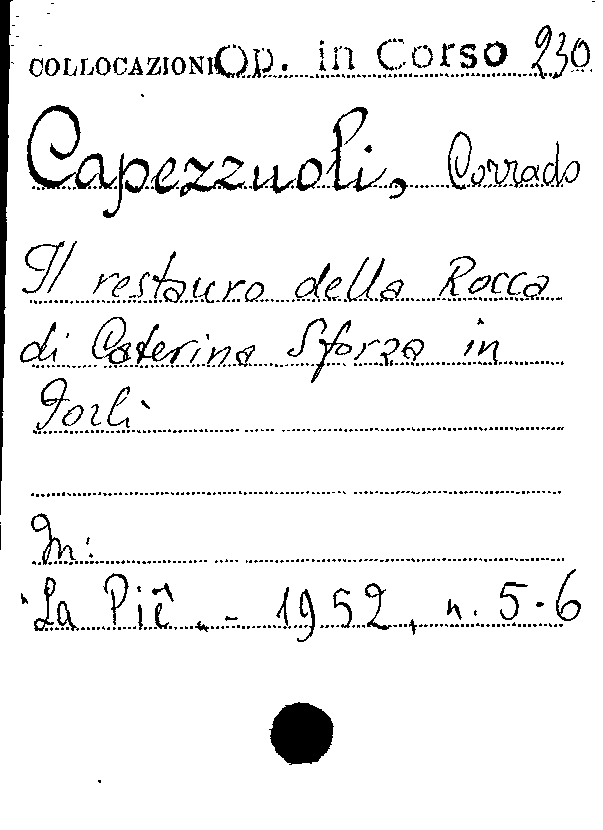 COLLOCAZIONE Op. in Corso 230
Capezzuoli, Corrado
Il restauro della Rocca
di Caterina Sforza in
Forlì
In:
"La Piê". - 1952, n. 5-6